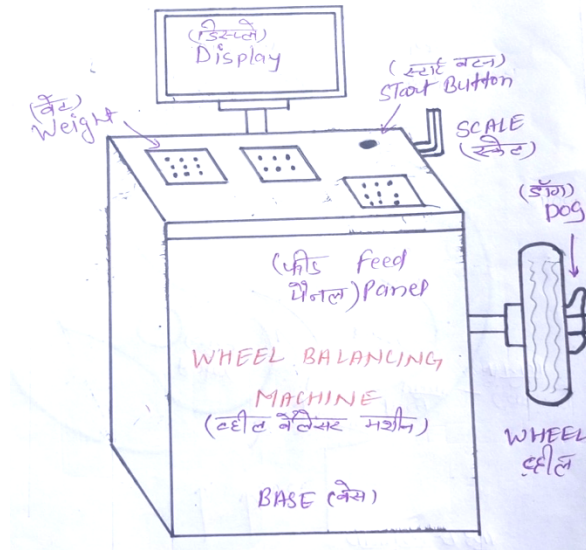 (डिस्प्ले)
Display
(स्टार्ट बटन)
Start Button
(वेट)
Weight
SCALE
(स्केट)
(डॉग)
DOG
(फीड Feed
पैनल) Panel
WHEEL BALANCING
MACHINE
(व्हील बैलेंसर मशीन)
WHEEL
व्हील
BASE (बेस)